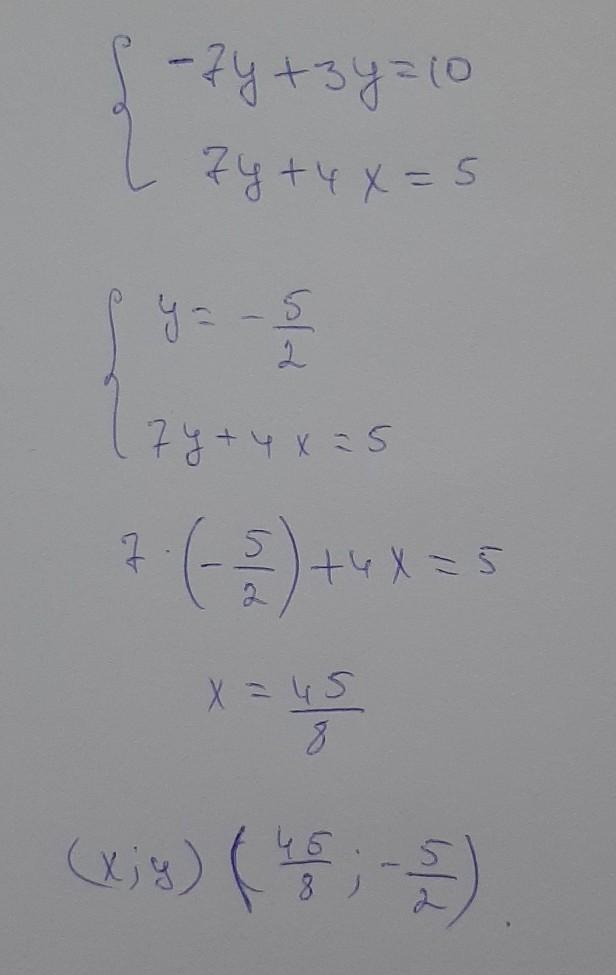 { -7y+3y=10
7y+4x=5
{ y=-5/2
7y+4x=5
7·(-5/2)+4x=5
x=45/8
(x;y) (45/8; -5/2).